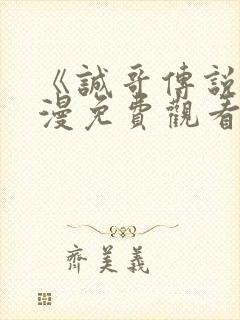 《誠哥傳說
漫免費觀看
齊美義